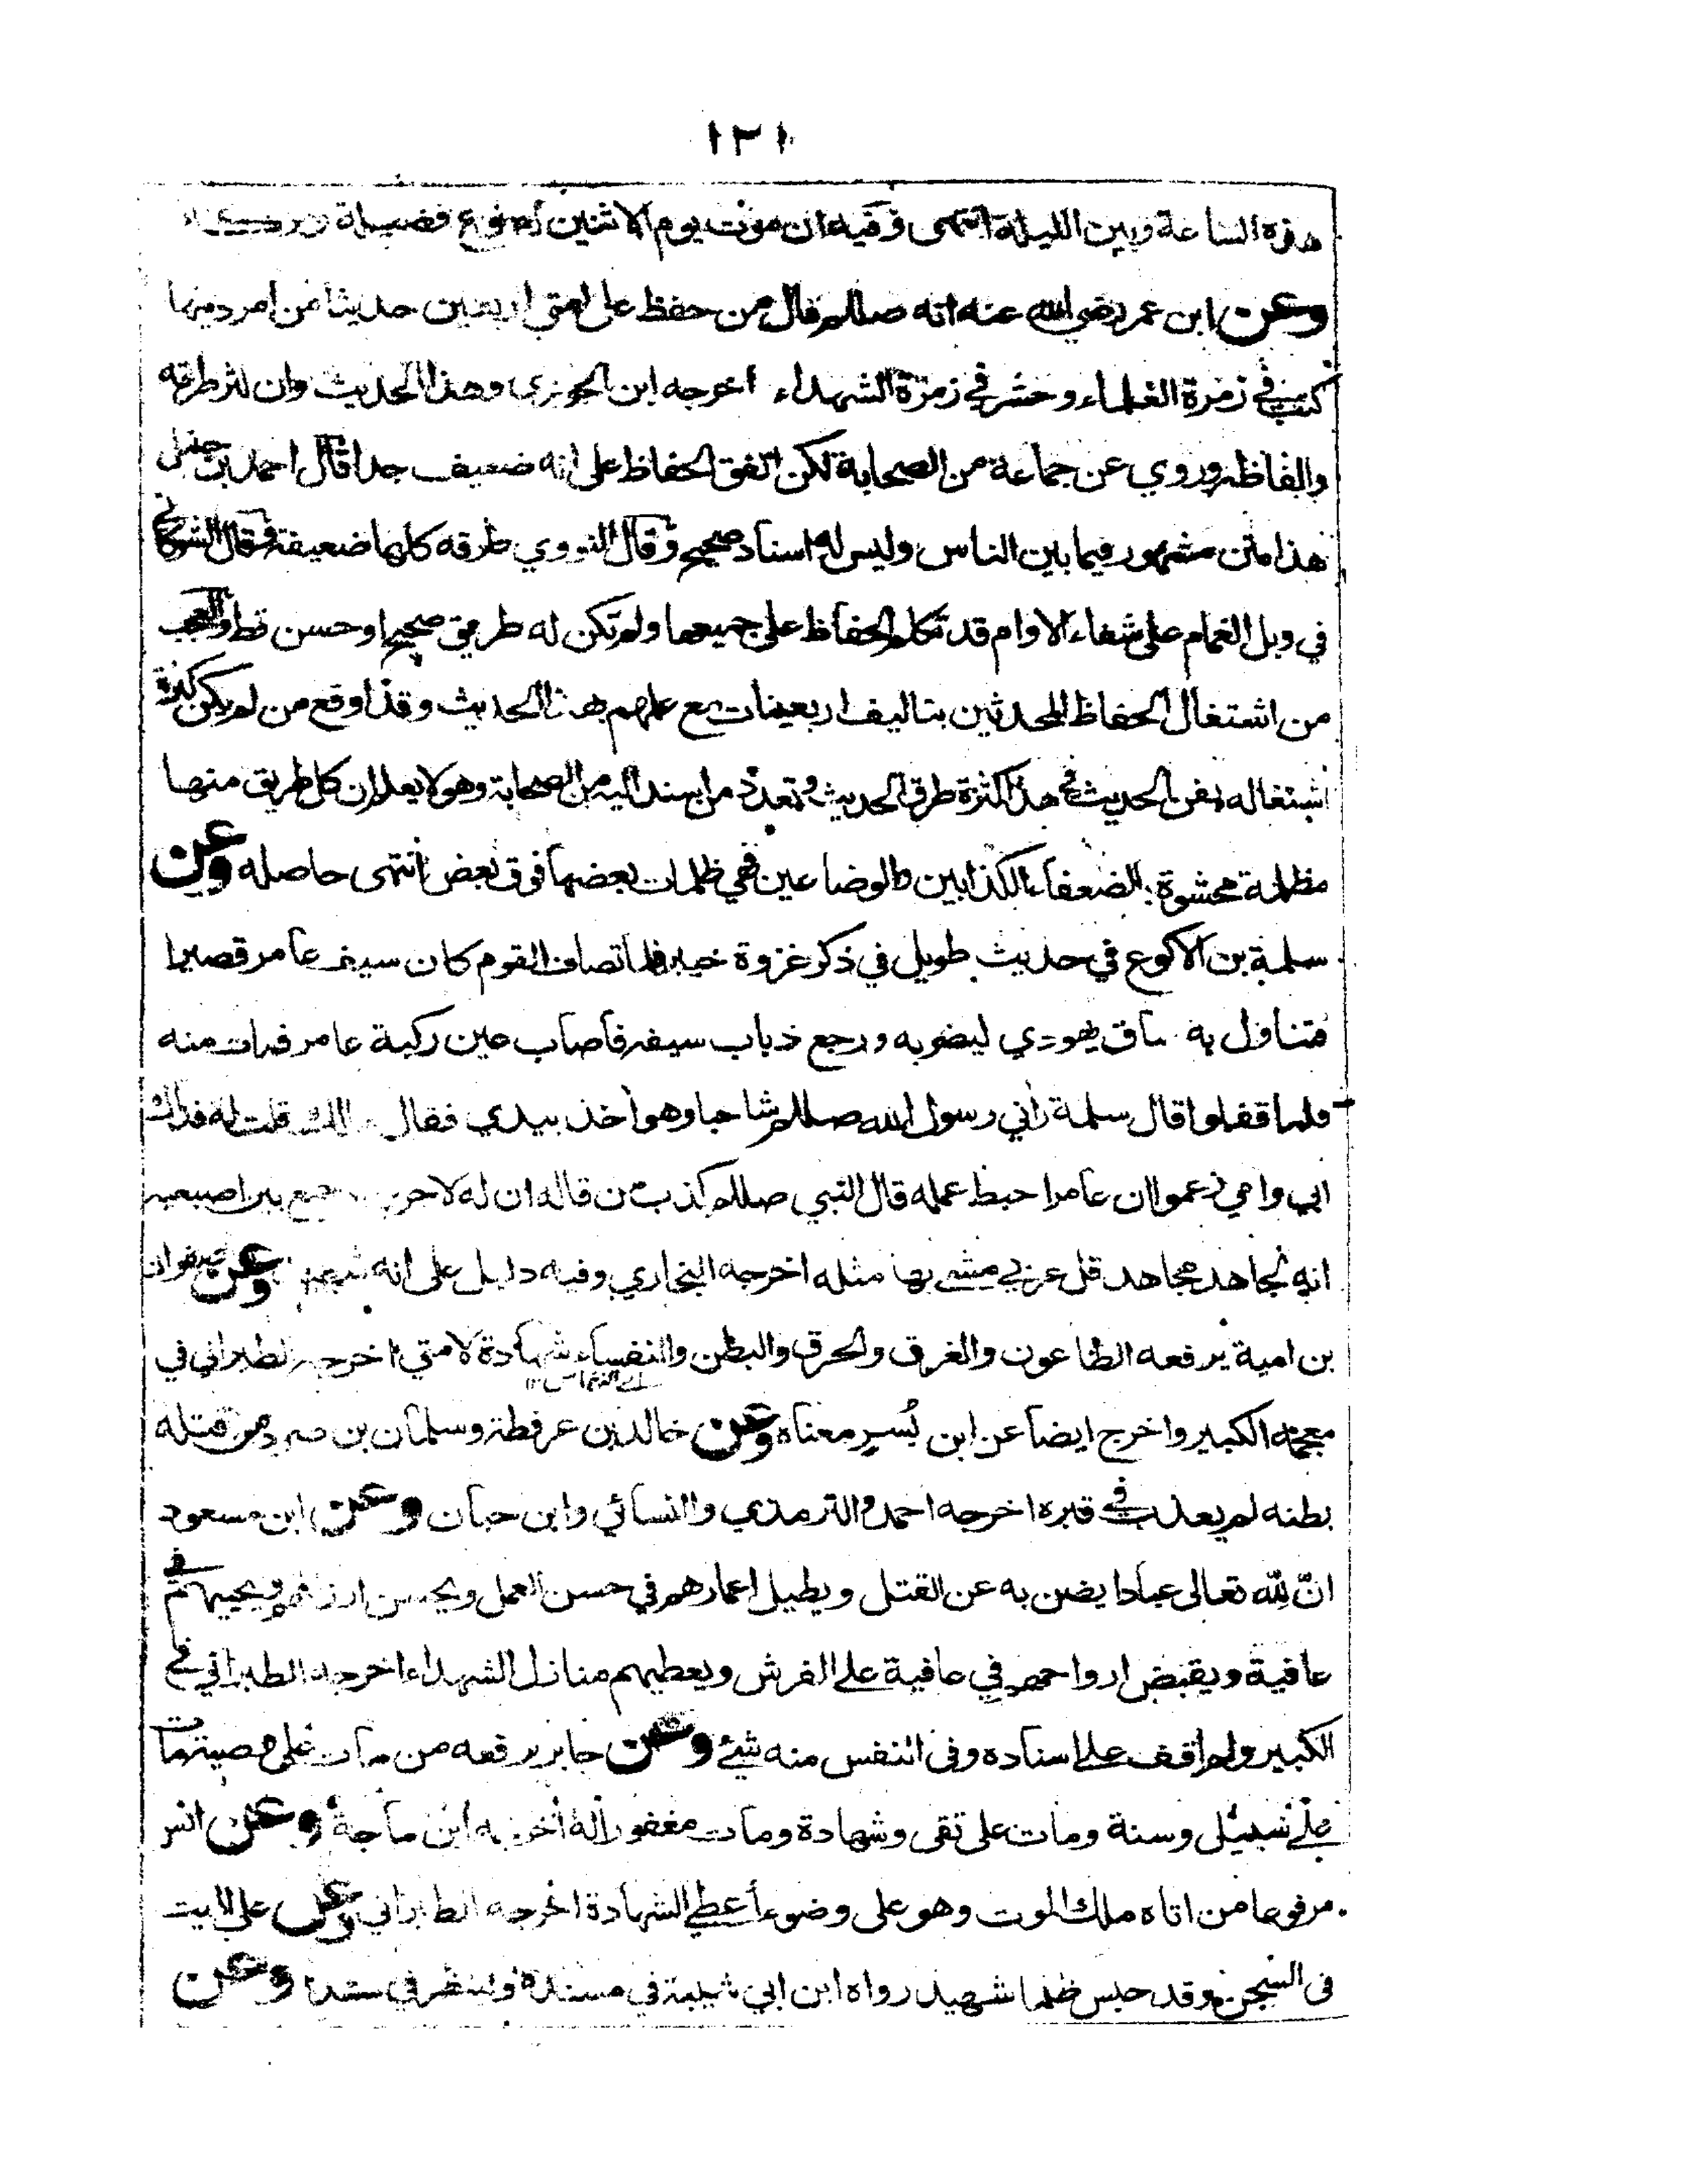 ١٢١
هذه الساعة وبين الليلة انتهى وفيه ان موت يوم الاثنين فضيلة
وعن ابن عمر رضي الله عنه انه صللم قال من حفظ على امتي اربعين حديثا من امر دينها
كتب في زمرة العلماء وحشر في زمرة الشهداء اخرجه ابن الجوزي وهذا الحديث وان كثر طرقه
والفاظه وروي عن جماعة من الصحابة لكن اتفق الحفاظ على انه ضعيف جدا قال احمد بن حنبل
هذا متن مشهور فيما بين الناس وليس له اسناد صحيح وقال النووي طرقه كلها ضعيفة وقال الشوكاني
في وبل الغمام على شفاء الاوام قد تكلم الحفاظ على جميعها ولم تكن له طريق صحيح او حسن قط والعجب
من اشتغال الحفاظ المحدثين بتاليف اربعينات مع علمهم بهذا الحديث وقد اوقع من لم يكن كثرة
اشتغاله بفن الحديث في هذا كثرة طرق الحديث وتعدد من يسند اليه من الصحابة وهو لا يعلم ان كل طريق منها
مظلمة محشوة بالضعفاء الكذابين والوضاعين فهي ظلمات بعضها فوق بعض انتهى حاصله وعن
سلمة بن الاكوع في حديث طويل في ذكر غزوة خيبر فلما تصاف القوم كان سيف عامر قصيرا
فتناول به ساق يهودي ليضربه ورجع ذباب سيفه فاصاب عين ركبة عامر فمات منه
فلما قفلوا قال سلمة رأني رسول الله صللم شاحبا وهو أخذ بيدي فقال مالك قلت له فداك
ابي وامي زعموا ان عامرا حبط عمله قال النبي صللم كذب من قاله ان له لاجرين جمع بين اصبعيه
انه لجاهد مجاهد قل عربي مشى بها مثله اخرجه البخاري وفيه دليل على انه شهيد وعن صفوان
بن امية يرفعه الطاعون والغرق والحرق والبطن والنفساء شهادة لامتي اخرجه الطبراني في
اي النفاس ١٢
معجمه الكبير واخرج ايضا عن ابن بُسر معناه وعن خالد بن عرفطة وسلمان بن صرد من قتله
بطنه لم يعذب في قبره اخرجه احمد والترمذي والنسائي وابن حبان وعن ابن مسعود
انّ لله تعالى عبادا يضن به عن القتل ويطيل اعمارهم في حسن العمل ويحسن ارزاقهم ويحييهم في
عافية ويقبض ارواحهم في عافية على الفرش ويعطيهم منازل الشهداء اخرجه الطبراني في
الكبير ولم اقف على اسناده وفى النفس منه شئ وعن جابر يرفعه من مات على وصية مات
على سبيل وسنة ومات على تقى وشهادة ومات مغفورا له اخرجه ابن ماجة وعن انس
مرفوعا من اتاه ملك الموت وهو على وضوء أعطي الشهادة اخرجه الطبراني وعن على الميت
فى السجن وقد حبس ظلما شهيد رواه ابن ابي شيبة في مسنده ولينظر في سنده وعن